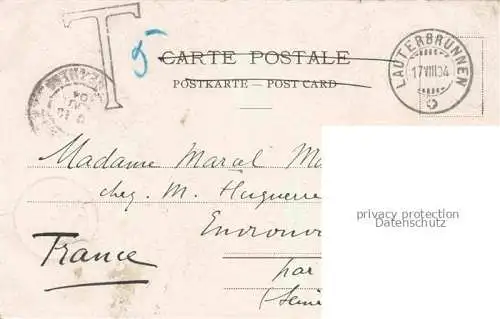 T 5
CARTE POSTALE
POSTKARTE — POST CARD
LAUTERBRUNNEN
17 VIII 04
Madame Marcel
chez M. Huguen
France
par
(Seine
privacy protection
Datenschutz